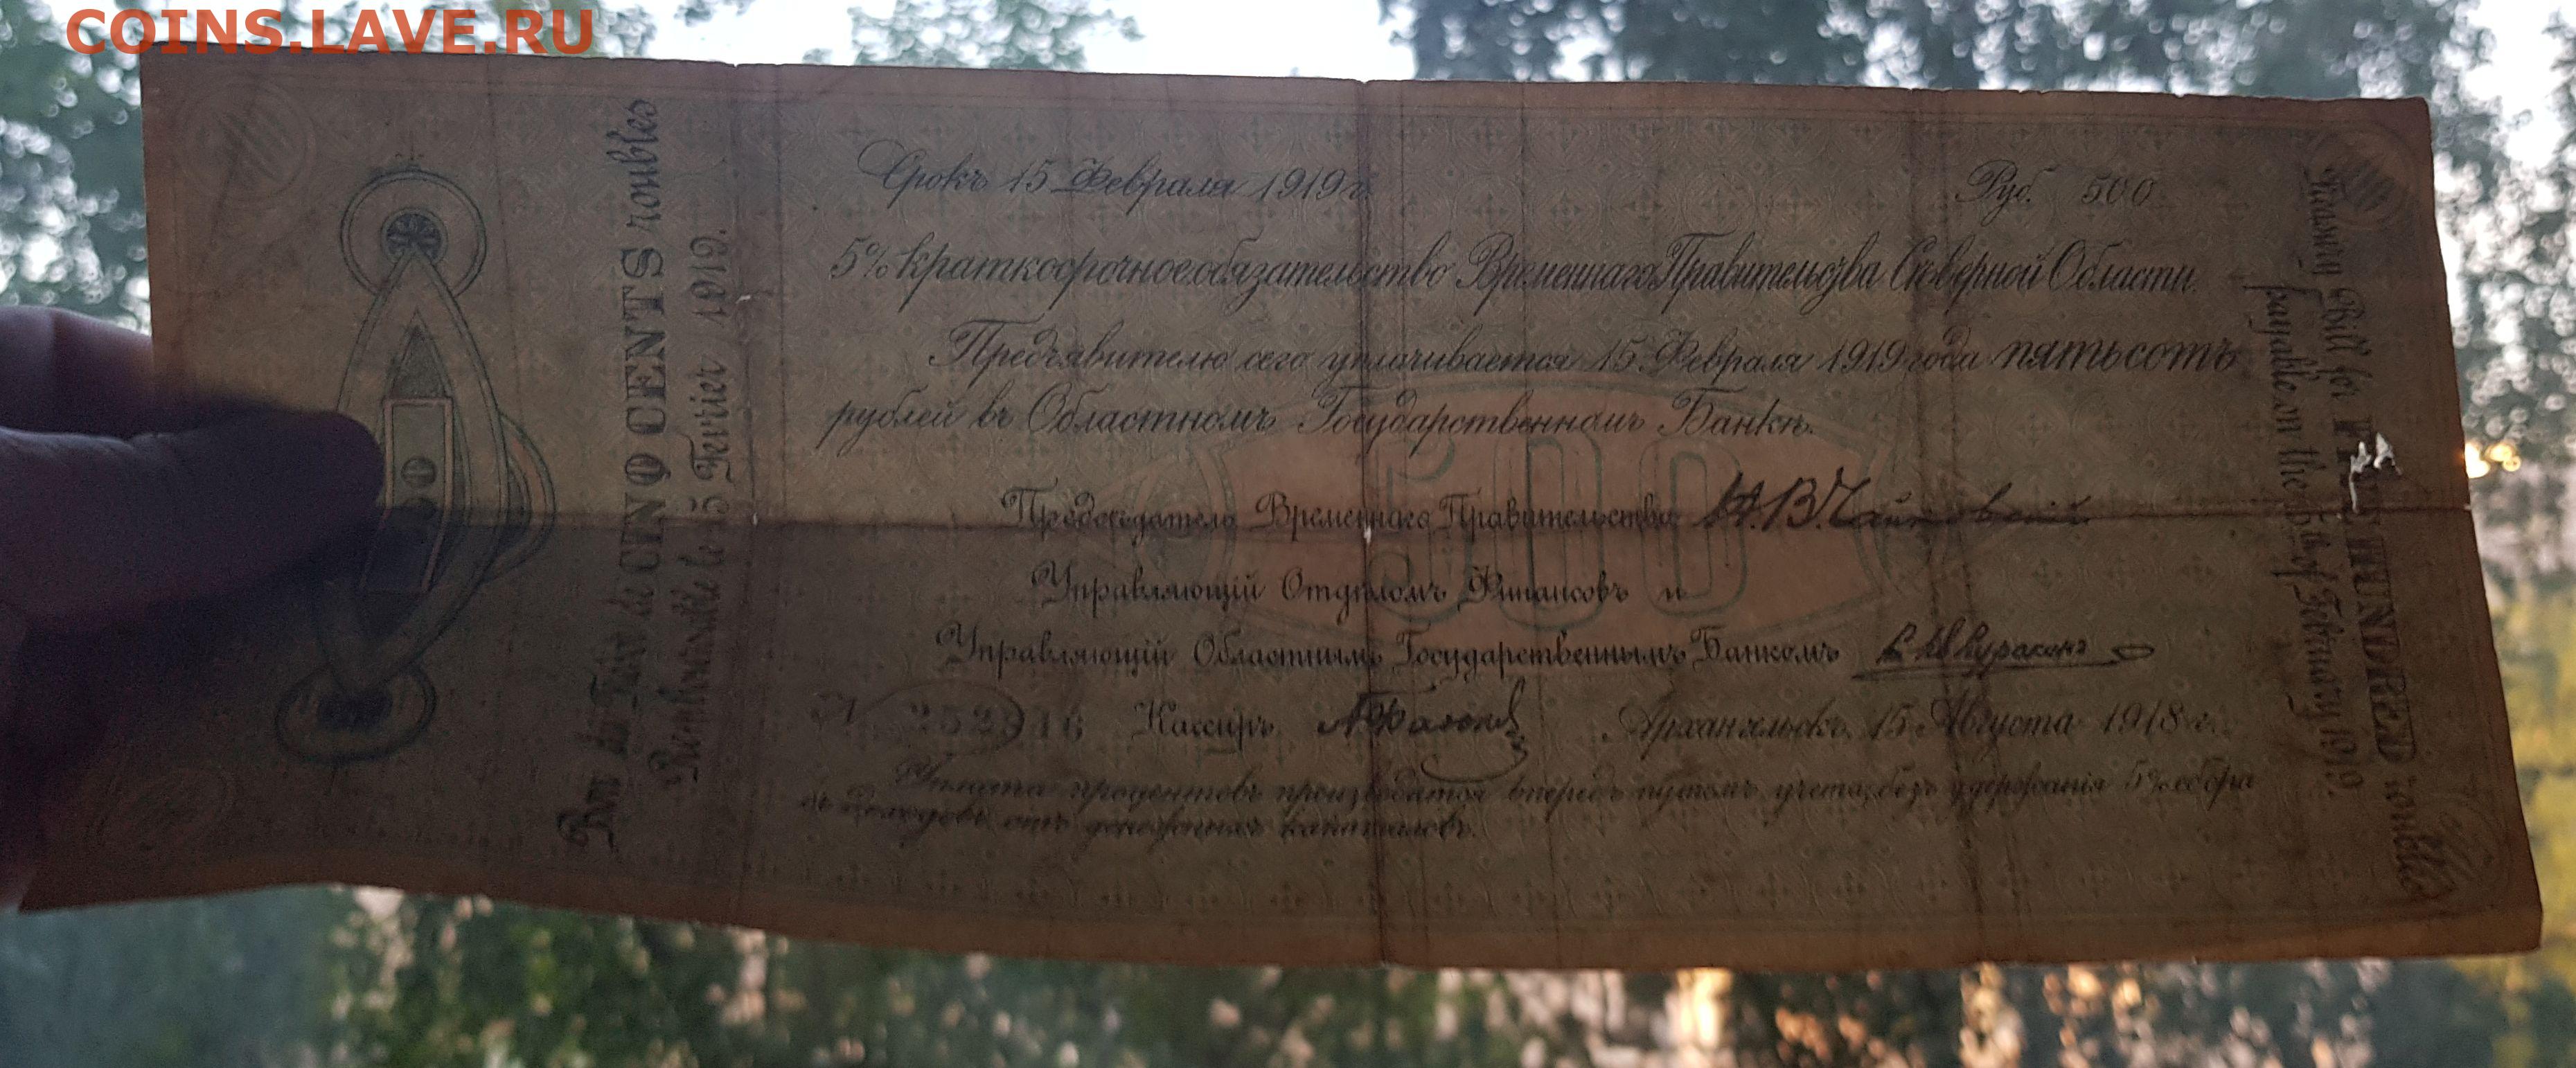 COINS.LAVE.RU
Срокъ 15 Февраля 1919 г.
Руб. 500
5% краткосрочное обязательство Временнаго Правительства Сѣверной Области.
Предъявителю сего уплачивается 15 Февраля 1919 года пятьсотъ
рублей въ Областномъ Государственномъ Банкѣ.
500
Предсѣдатель Временнаго Правительства Н.В. Чайковскій
Управляющій Отдѣломъ Финансовъ и
Управляющій Областнымъ Государственнымъ Банкомъ
Кассиръ
Архангельскъ, 15 Августа 1918 г.
Уплата процентовъ производится впередъ путемъ учета, безъ удержанія 5% сбора
съ доходовъ отъ денежныхъ капиталовъ.
Bon du de CINQ CENTS roubles
Remboursable le 15 Fevrier 1919.
Treasury Bill for HUNDRED roubles
payable on the 15 of February 1919.